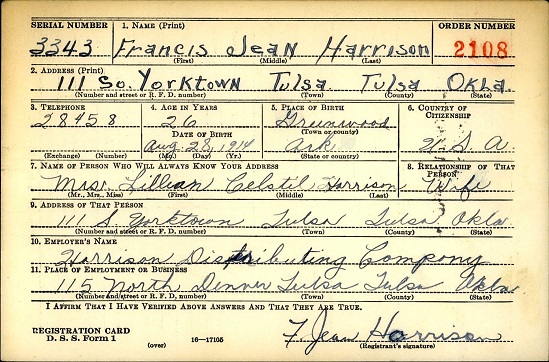 SERIAL NUMBER 1. NAME (Print) ORDER NUMBER
3343 Francis Jean Harrison 2108
(First) (Middle) (Last)
2. ADDRESS (Print)
111 So. Yorktown Tulsa Tulsa Okla.
(Number and street or R. F. D. number) (Town) (County) (State)
3. TELEPHONE 4. AGE IN YEARS 5. PLACE OF BIRTH 6. COUNTRY OF CITIZENSHIP
28458 26 Greenwood
DATE OF BIRTH (Town or county)
Aug. 28, 1914 Ark. U. S. A
(Exchange) (Number) (Mo.) (Day) (Yr.) (State or country)
7. NAME OF PERSON WHO WILL ALWAYS KNOW YOUR ADDRESS 8. RELATIONSHIP OF THAT PERSON
Mrs. Lillian Celstil Harrison Wife
(Mr., Mrs., Miss) (First) (Middle) (Last)
9. ADDRESS OF THAT PERSON
111 S. Yorktown Tulsa Tulsa Okla.
(Number and street or R. F. D. number) (Town) (County) (State)
10. EMPLOYER'S NAME
Harrison Distributing Company
11. PLACE OF EMPLOYMENT OR BUSINESS
115 North Denver Tulsa Tulsa Okla.
(Number and street or R. F. D. number) (Town) (County) (State)
I AFFIRM THAT I HAVE VERIFIED ABOVE ANSWERS AND THAT THEY ARE TRUE.
REGISTRATION CARD
D. S. S. Form 1 16-17105 F. Jean Harrison
(over) (Registrant's signature)